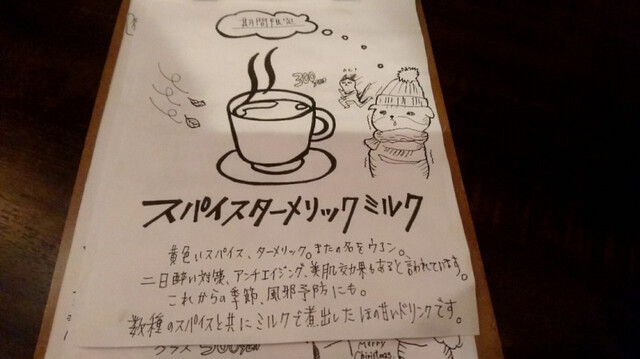 期間限定
300
スパイスターメリックミルク
黄色いスパイス、ターメリック。またの名をウコン。
二日酔い対策、アンチエイジング、美肌効果もあると言われています。
これからの季節、風邪予防にも。
数種のスパイスと共にミルクで煮出したほの甘いドリンクです。
グラス 500
Merry
Christmas